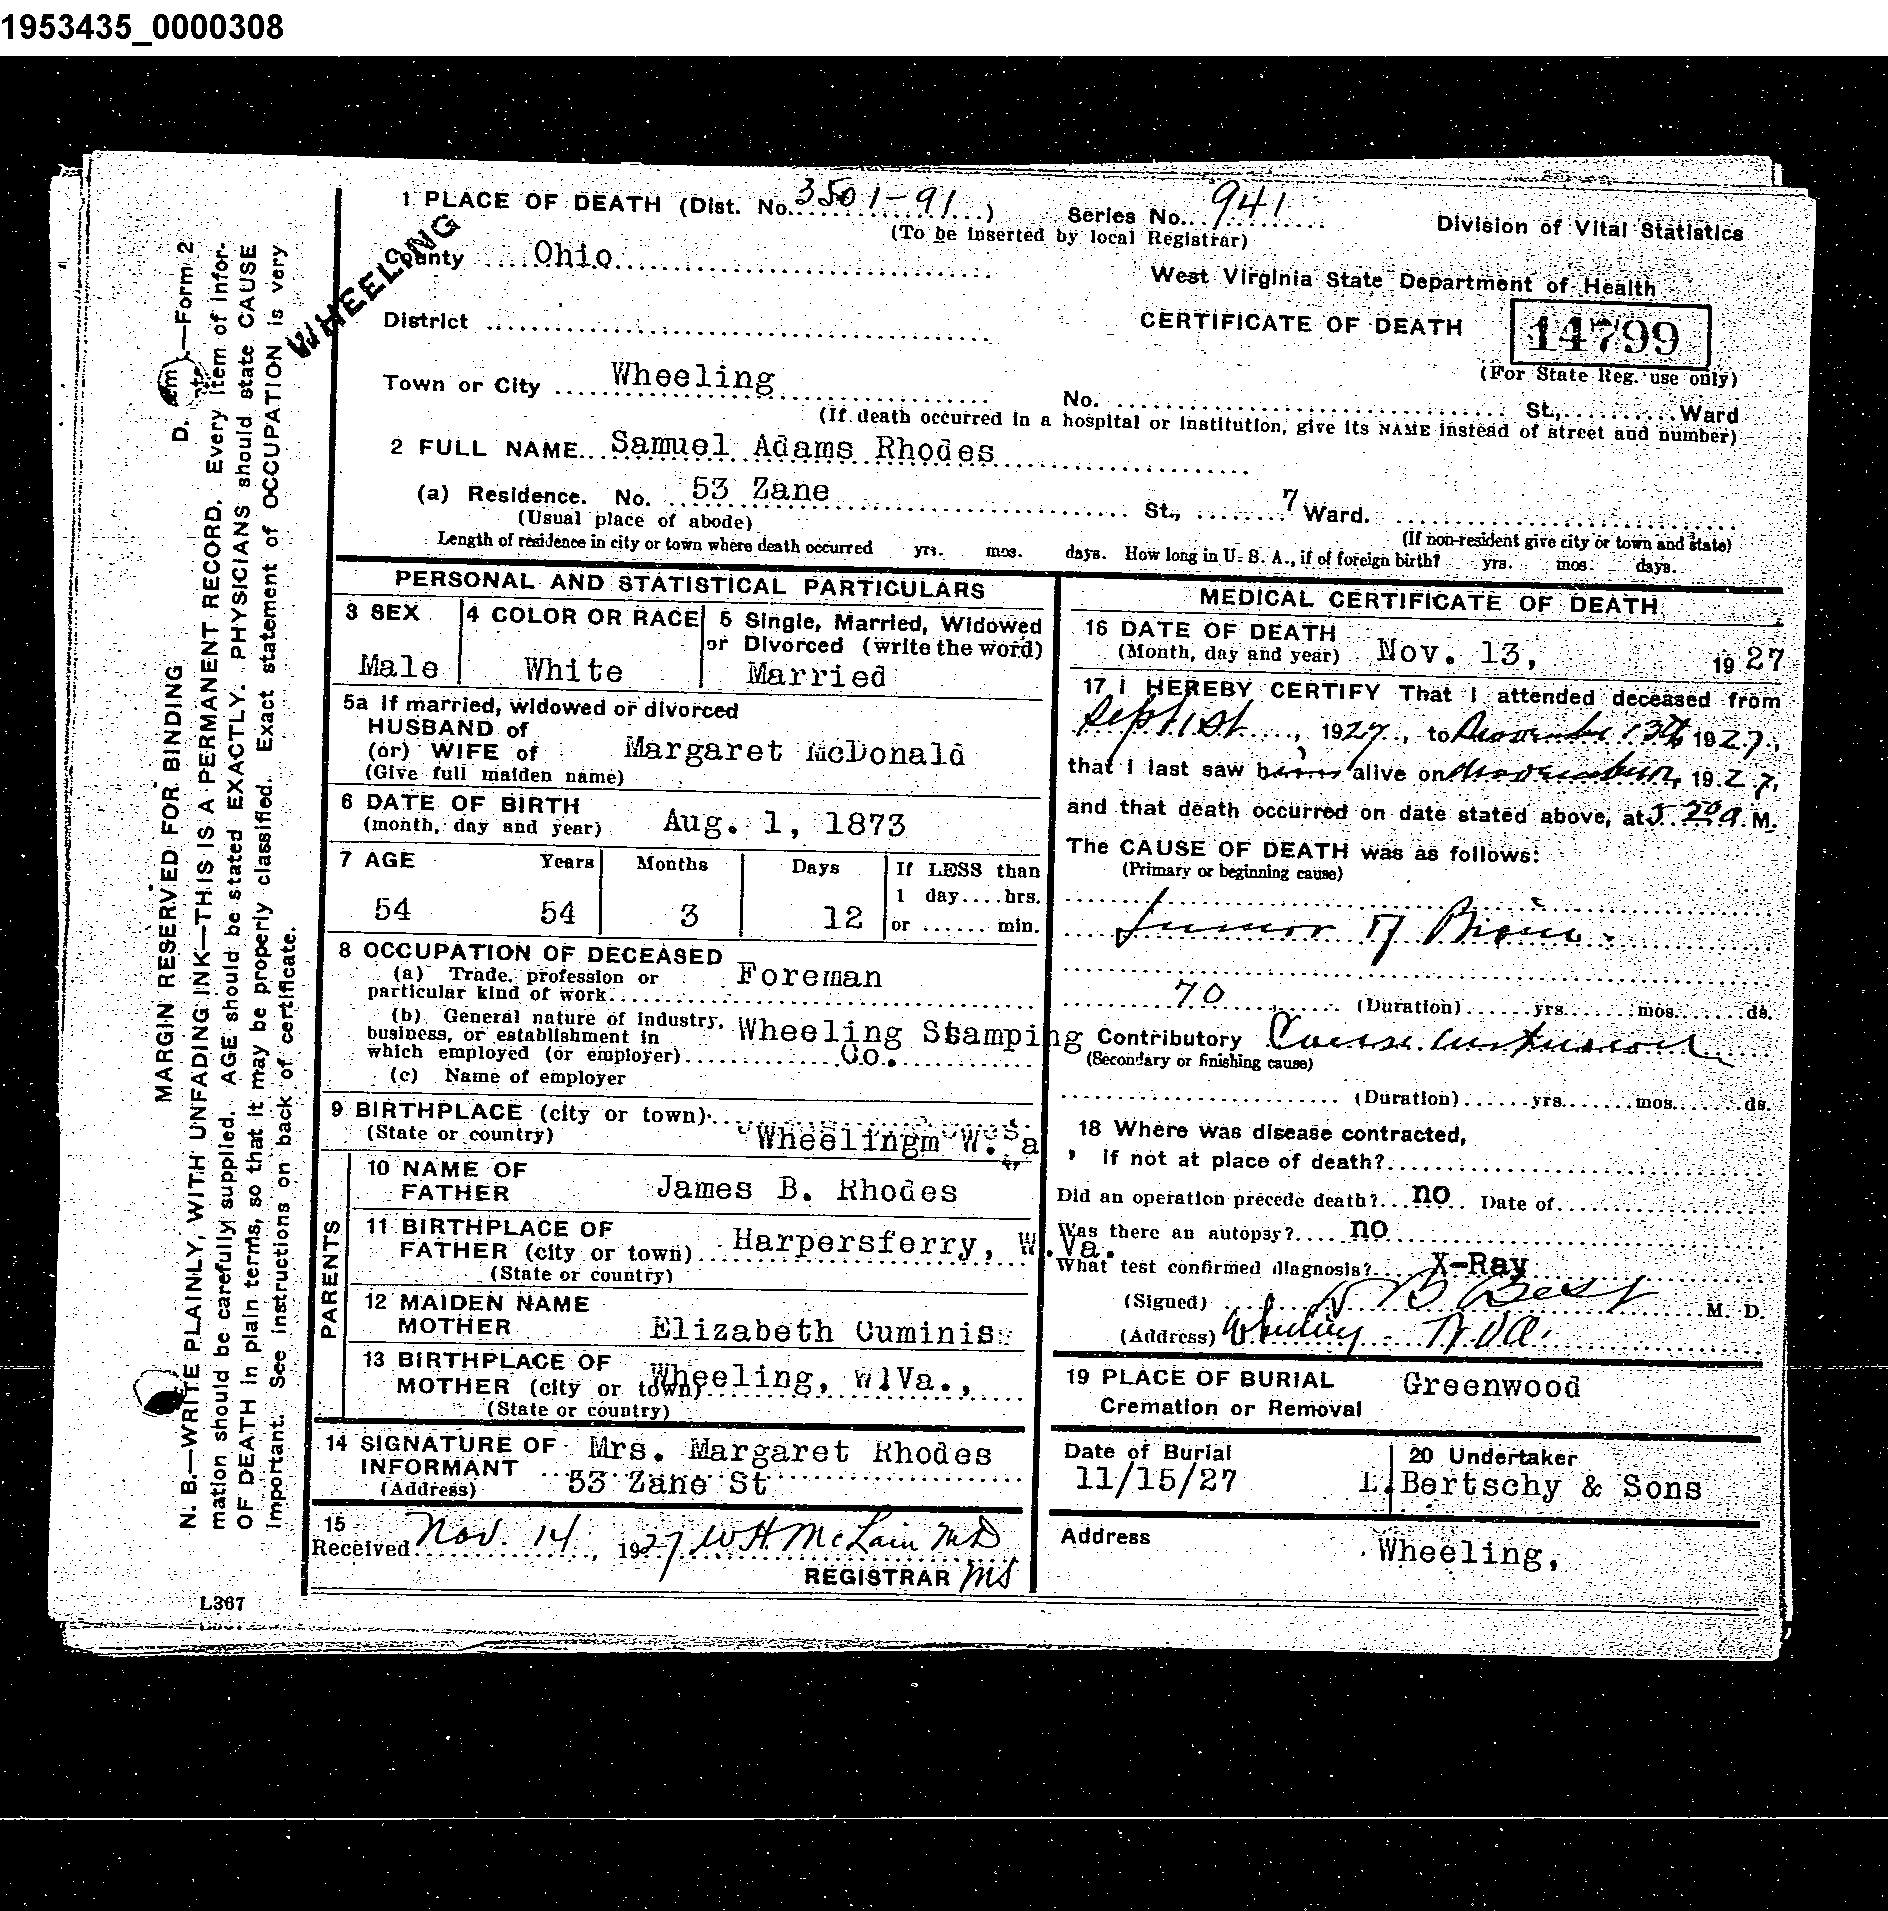 1953435_0000308
1 PLACE OF DEATH (Dist. No. 3501-91 ) Series No. 941
(To be inserted by local Registrar)
Division of Vital Statistics
WHEELING
County Ohio
West Virginia State Department of Health
District
CERTIFICATE OF DEATH 14799
(For State Reg. use only)
Town or City Wheeling No. St., Ward
(If death occurred in a hospital or institution, give its NAME instead of street and number)
2 FULL NAME Samuel Adams Rhodes
(a) Residence. No. 53 Zane St., 7 Ward.
(Usual place of abode) (If non-resident give city or town and state)
Length of residence in city or town where death occurred yrs. mos. days. How long in U. S. A., if of foreign birth? yrs. mos. days.
PERSONAL AND STATISTICAL PARTICULARS
3 SEX 4 COLOR OR RACE 5 Single, Married, Widowed
or Divorced (write the word)
Male White Married
5a If married, widowed or divorced
HUSBAND of
(or) WIFE of Margaret McDonald
(Give full maiden name)
6 DATE OF BIRTH
(month, day and year) Aug. 1, 1873
7 AGE Years Months Days If LESS than
1 day....hrs.
54 54 3 12 or ...... min.
8 OCCUPATION OF DECEASED
(a) Trade, profession or
particular kind of work Foreman
(b) General nature of industry,
business, or establishment in
which employed (or employer) Wheeling Stamping Co.
(c) Name of employer
9 BIRTHPLACE (city or town)
(State or country) Wheelingm W. a
PARENTS
10 NAME OF
FATHER James B. Rhodes
11 BIRTHPLACE OF
FATHER (city or town) Harpersferry, W.Va.
(State or country)
12 MAIDEN NAME
MOTHER Elizabeth Cuminis
13 BIRTHPLACE OF
MOTHER (city or town) Wheeling, W.Va.,
(State or country)
14 SIGNATURE OF Mrs. Margaret Rhodes
INFORMANT
(Address) 53 Zane St
15
Received Nov. 14, 1927 W H McLain MD
REGISTRAR MS
MEDICAL CERTIFICATE OF DEATH
16 DATE OF DEATH
(Month, day and year) Nov. 13, 1927
17 I HEREBY CERTIFY That I attended deceased from
Sept 1st, 1927, to November 13th, 1927,
that I last saw him alive on 1927,
and that death occurred on date stated above, at M.
The CAUSE OF DEATH was as follows:
(Primary or beginning cause)
Tumor of Brain.
70 (Duration) yrs. mos. ds.
Contributory
(Secondary or finishing cause)
(Duration) yrs. mos. ds.
18 Where was disease contracted,
if not at place of death?
Did an operation precede death? no Date of
Was there an autopsy? no
What test confirmed diagnosis? X-Ray
(Signed) B Best M. D.
(Address) Wheeling W. Va.
19 PLACE OF BURIAL Greenwood
Cremation or Removal
Date of Burial 20 Undertaker
11/15/27 L. Bertschy & Sons
Address Wheeling,
D. —Form 2
MARGIN RESERVED FOR BINDING
N. B.—WRITE PLAINLY, WITH UNFADING INK—THIS IS A PERMANENT RECORD. Every item of infor-
mation should be carefully supplied. AGE should be stated EXACTLY. PHYSICIANS should state CAUSE
OF DEATH in plain terms, so that it may be properly classified. Exact statement of OCCUPATION is very
important. See instructions on back of certificate.
L367